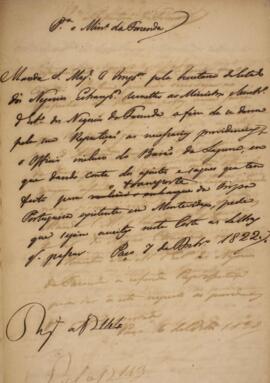 Pª o Minº da Fazenda
Manda S. Mag. O Impºr pela Secretaria de Estado
dos Negocios Estrangºs remetter ao Ministro e Secretº
d'Estº dos Negocios da Fazenda a fim de se darem
pela sua Repartição as necessarias providencias,
o Officio incluso do Barão da Laguna, em
que dando conta do ajuste e saques que tem
feito para o transporte da Tropa
Portugueza existente em Montevideo, pede
que sejam aceitas nesta Corte as Letras
q. passar. Paço 7 de Dezbrº 1822,,